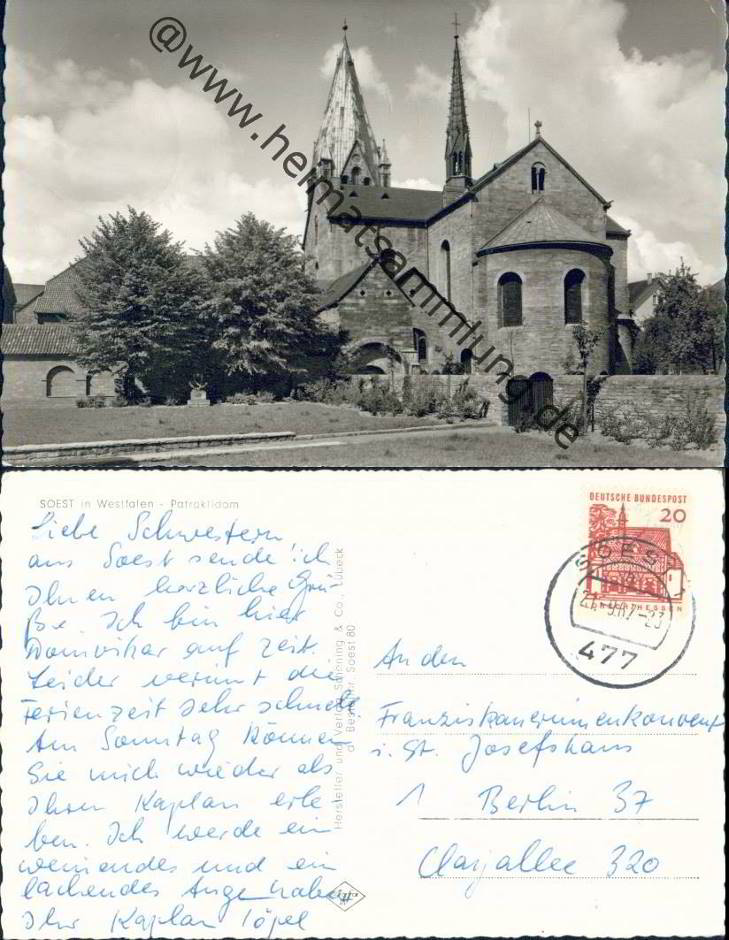 @www.heimatsammlung.de
SOEST in Westfalen - Patroklidom
Liebe Schwestern
aus Soest sende ich
Ihnen herzliche Grü-
ße. Ich bin hier
Domvikar auf Zeit.
Leider verrinnt die
Ferienzeit sehr schnell.
Am Sonntag können
Sie mich wieder als
Ihren Kaplan erle-
ben. Ich werde ein
weinendes und ein
lachendes Auge haben
Ihr Kaplan Töpel
Hersteller und Verlag Schöning & Co., Lübeck
Bestell-Nr. Soest 80
DEUTSCHE BUNDESPOST
20
SOEST
-23
477
An den
Franziskanerinnenkonvent
i. St. Josefshaus
1 Berlin 37
Clayallee 320